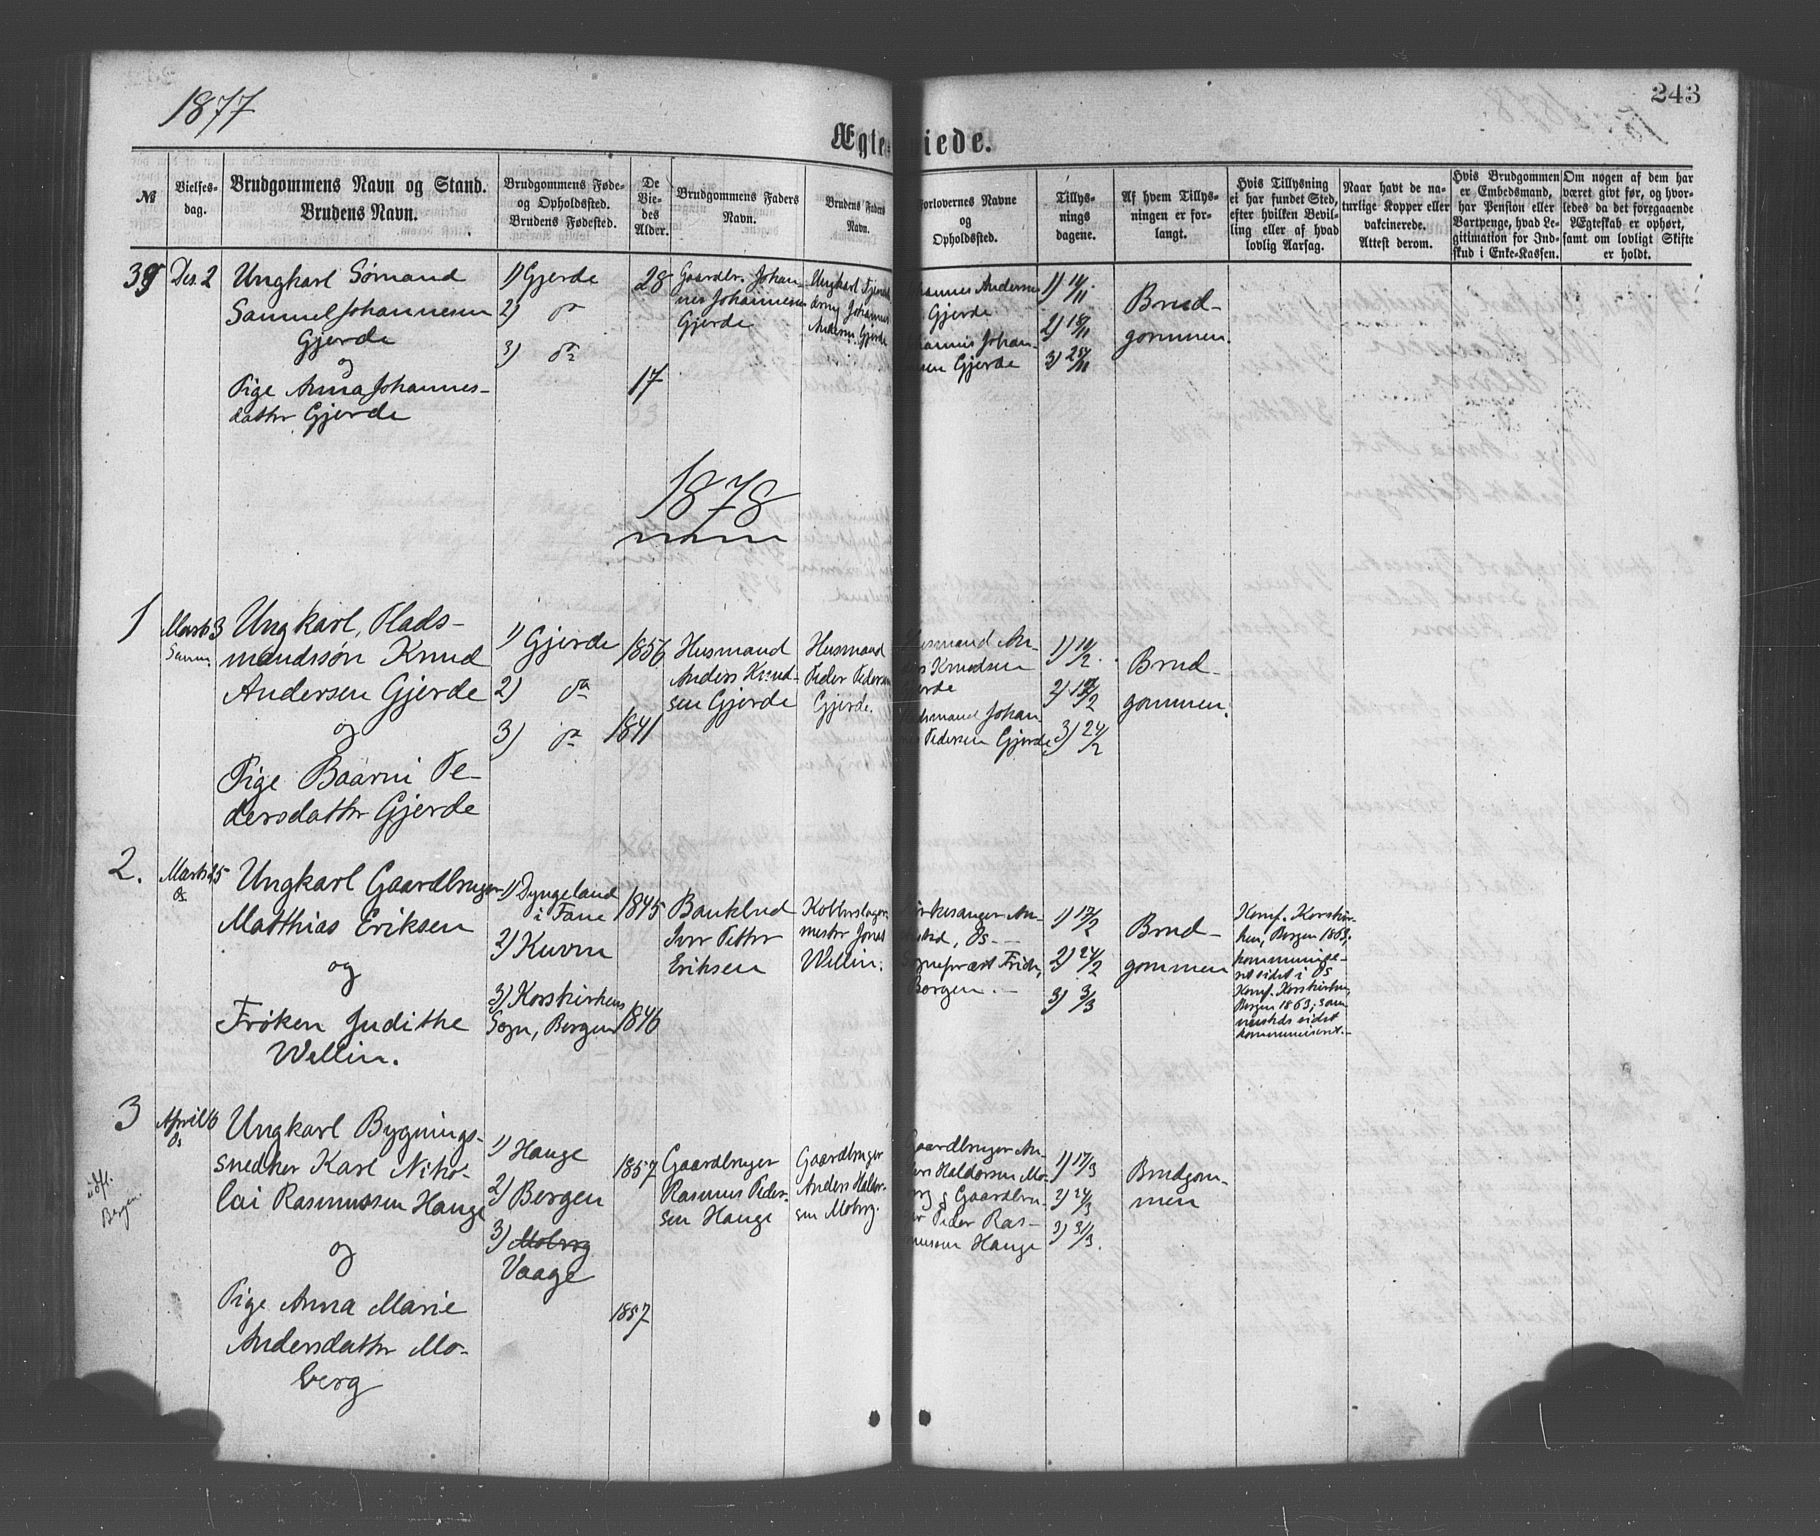 1877
243
Ægteviede.
№
Vielses-
dag.
Brudgommens Navn og Stand.
Brudens Navn.
Brudgommens Føde-
og Opholdssted.
Brudens Fødested.
De
Vie-
des
Alder.
Brudgommens Faders
Navn.
Brudens Faders
Navn.
Forlovernes Navne
og
Opholdssted.
Tillys-
nings
dagene.
Af hvem Tillys-
ningen er for-
langt.
Hvis Tillysning
ei har fundet Sted,
efter hvilken Bevil-
ling eller af hvad
lovlig Aarsag.
Naar havt de na-
turlige Kopper eller
vakcinerede.
Attest derom.
Hvis Brudgommen
er Embedsmand,
har Pension eller
Vartpenge, hvad Le-
gitimation for Ind-
skud i Enke-Kassen.
Om nogen af dem har
været givt før, og hvor-
ledes da det foregaaende
Ægteskab er ophørt,
samt om lovligt Skifte
er holdt.
39
Des. 2
Ungkarl Sømand
Samuel Johannesen
Gjerde
og
Pige Anna Johannes-
datter Gjerde
1) Gjerde
2) do
3) do
28
17
Gaardbr. Johan-
nes Johannesen
Gjerde
Ungkarl
Johannes
Andersen Gjerde
hannes Andersen
Gjerde
hannes Johan-
sen Gjerde
1) 11/11
2) 18/11
3) 25/11
Brud-
gommen.
1878
1
Marts 3
Ungkarl, Plads-
mandssøn Knud
Andersen Gjerde
og
Pige Baarni Pe-
dersdatter Gjerde
1) Gjerde
2) do
3) do
1856
1841
Husmand
Anders Knud-
sen Gjerde
Husmand
Peder Pedersen
Gjerde.
Husmand An-
ers Knudsen
erde
Husmand Johan
nes Pedersen Gjerde
1) 10/2.
2) 17/2
3) 24/2
Brud-
gommen.
2.
Marts 25
Os
Ungkarl Gaardbruger
Matthias Eriksen
og
Frøken Judithe
Wellin.
1) Dyngeland
i Fane
2) Kuven
3) Korskirkens
Sogn, Bergen
1845
1846
Bankbud
Iver Petter
Eriksen
Kobberslager-
mester Jonas
Wellin.
Kirkesanger An-
Os
Sognepræst
Bergen.
1) 17/2
2) 24/2
3) 3/3
Brud-
gommen
Konf. Korskir-
ken, Bergen 1863;
kommunice-
ret sidst i Os
Konf. Korskirken,
Bergen 1863; sam-
mesteds sidst
kommuniceret.
3
April 6
Os
udfl.
Bergen.
Ungkarl Bygnings-
snedker Karl Niko-
lai Rasmussen Hauge
og
Pige Anna Marie
Andersdatter Mo-
berg
1) Hauge
2) Bergen
3) Moberg
Vaage
1857
1857
Gaardbruger
Rasmus Peder-
sen Hauge
Gaardbruger
Anders Haldor-
sen Moberg.
Gaardbruger An-
ders Haldorsen Mo-
berg & Gaardbru-
er Peder Ras-
mussen Hauge
1) 17/3
2) 24/3
3) 31/3.
Brudgom-
men